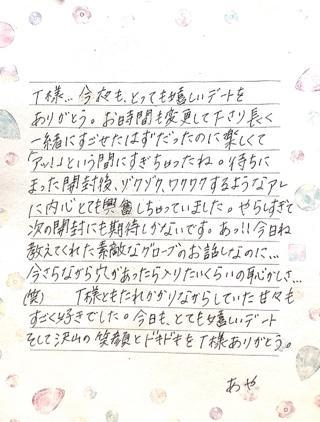 T様… 今夜も、とっても嬉しいデートを
ありがとう。お時間も変更して下さり長く
一緒にすごせたはずだったのに楽しくて
アッ!!という間にすぎちゃったね。待ちに
まった開封後、ゾクゾク、ワクワクするようなアレ
に内心とても興奮しちゃっていました。やらしすぎて
次の開封にも期待しかないです。あっ!!今日ね
教えてくれた素敵なグローブのお話しなのに…
今さらながら穴があったら入りたいくらいの恥かしさ…
(笑) T様ともたれかかりながらしていた甘々も
すごく好きでした。今日も、とても嬉しいデート
そして沢山の笑顔とドキドキをT様ありがとう。
あや